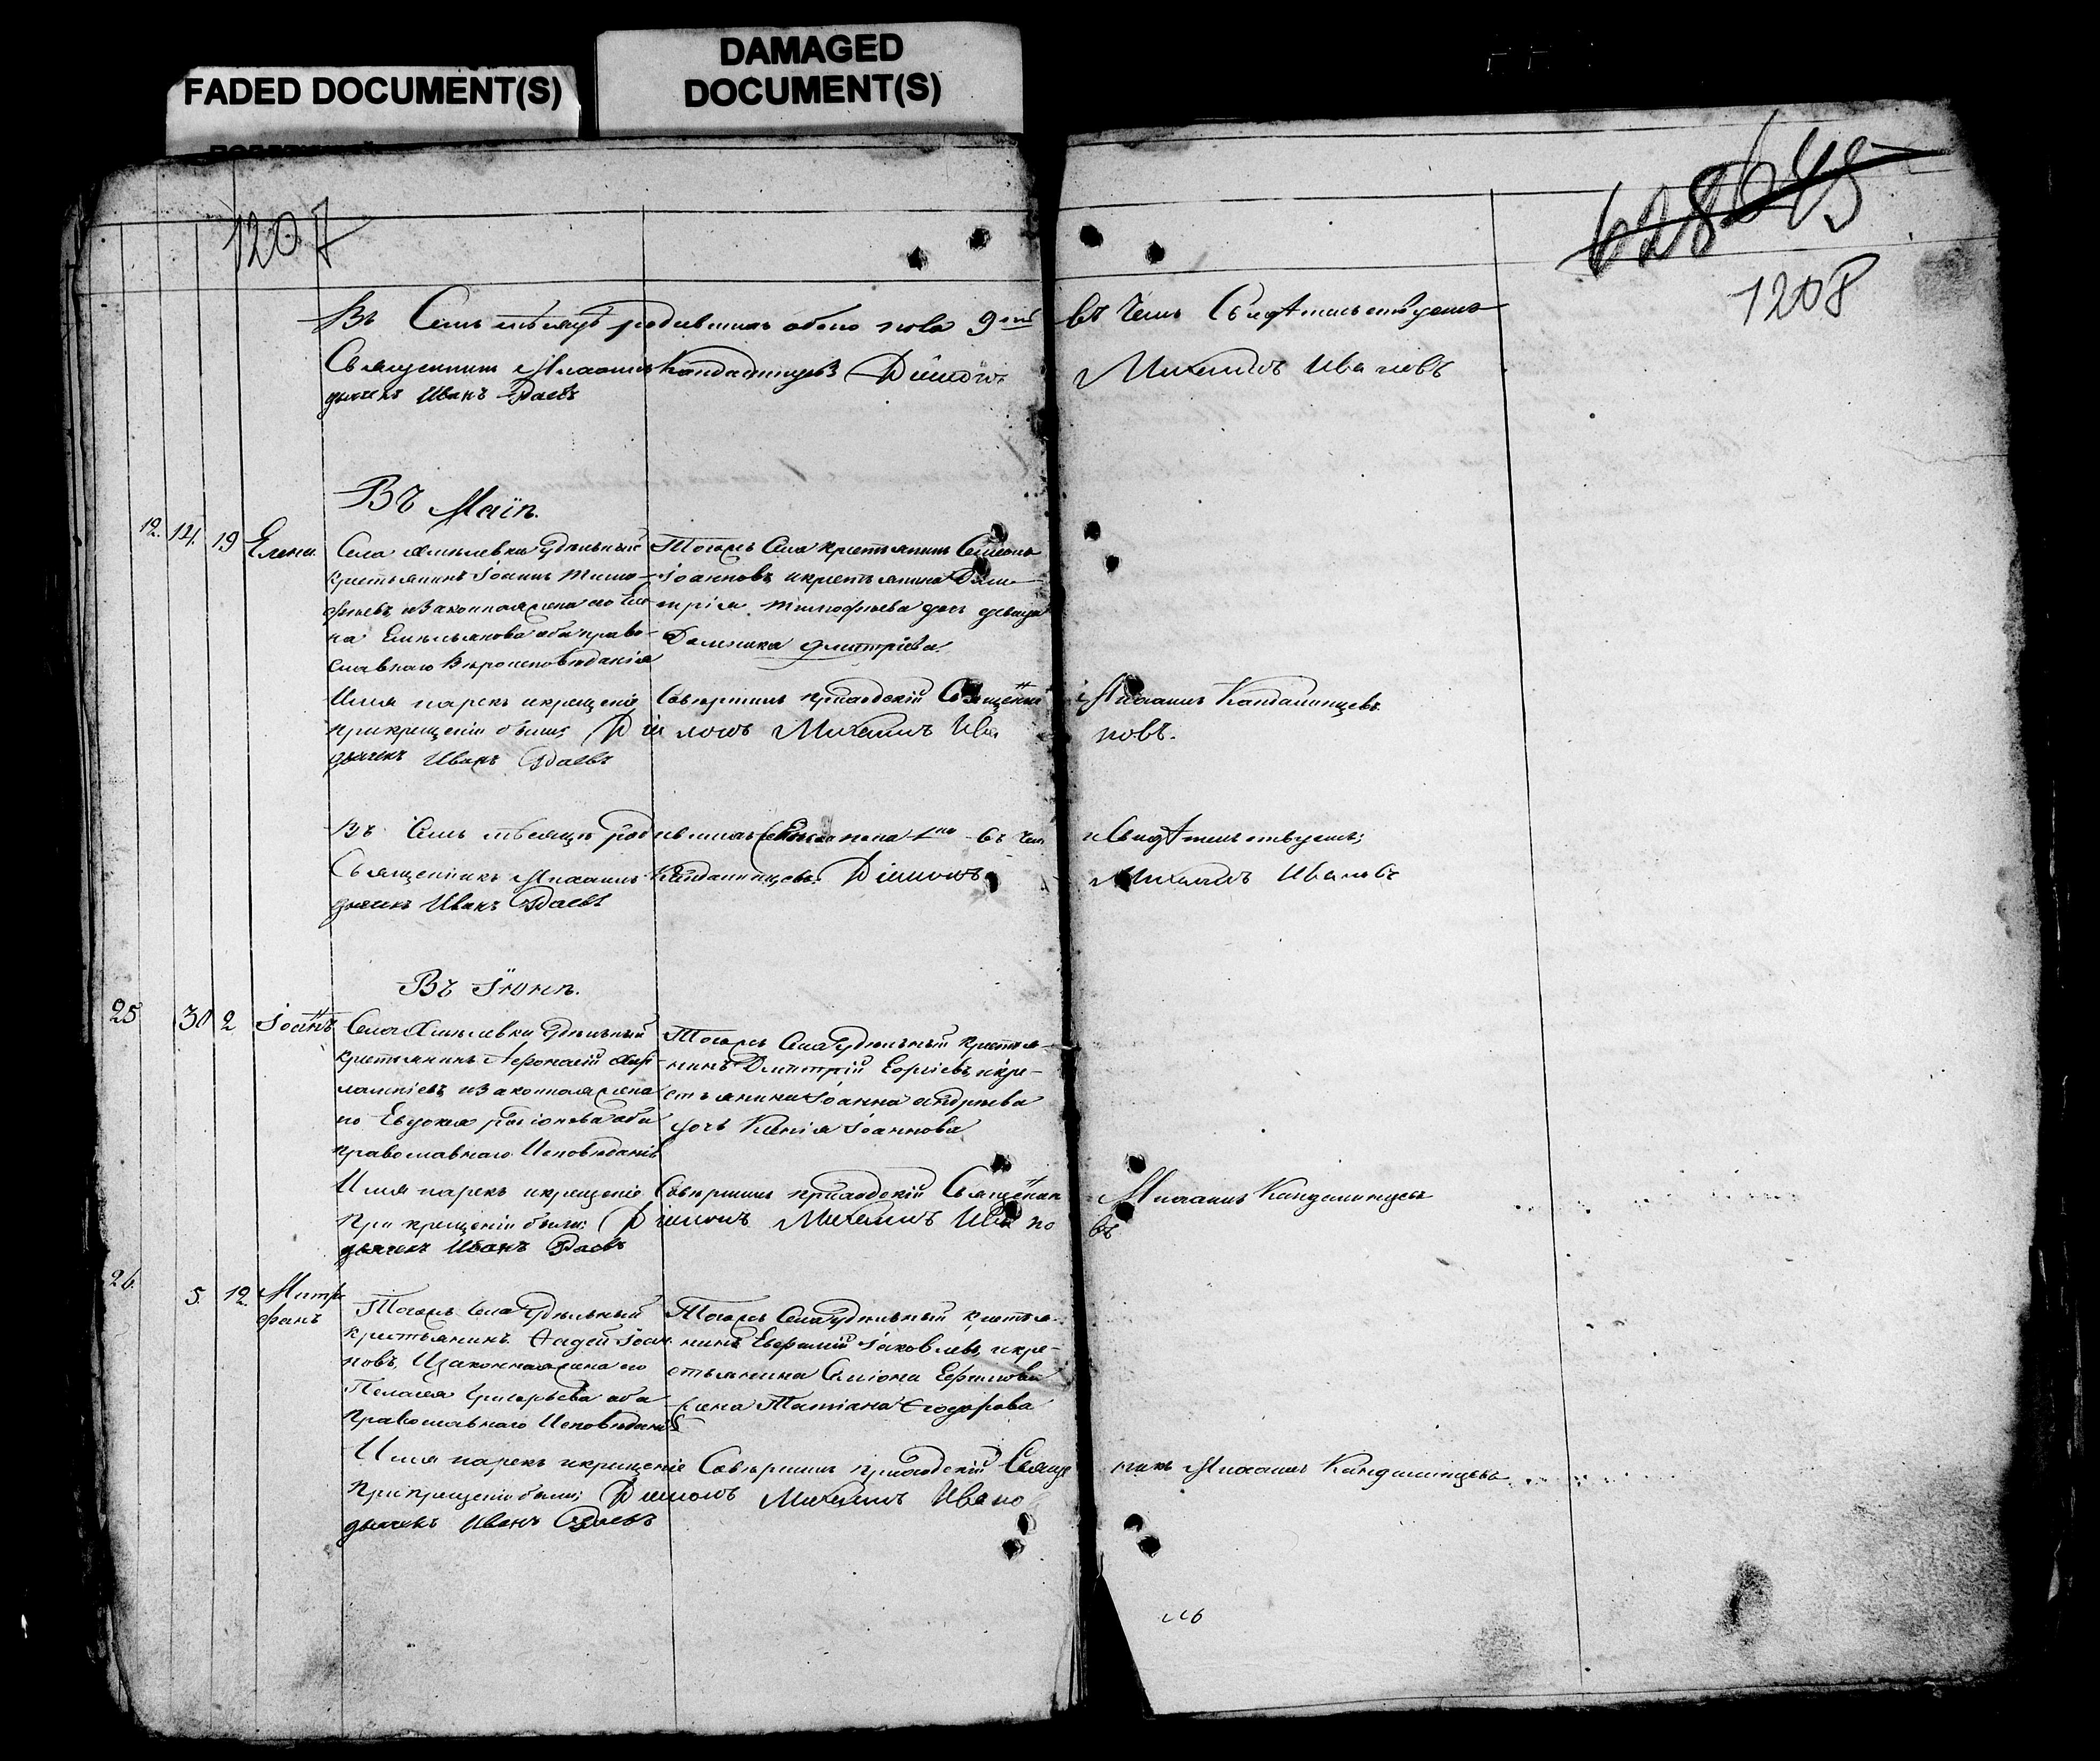 FADED DOCUMENT(S)
DAMAGED
DOCUMENT(S)
1207
628 645
1208
Въ Семъ мѣсяцѣ родившихъ обоего пола 9 въ чемъ Свидѣтельствуемъ
Священникъ Михаилъ Кандалинцевъ Діаконъ Михаилъ Ивановъ
дьячекъ Иванъ
Въ Маіи.
12. 14. 19 Елена.
Села удѣльный
крестьянинъ Іоаннъ Тимо-
фѣевъ изаконная жена его Еле-
на Емельянова оба право-
славнаго Вѣроисповѣданія
Тогожъ Села крестьянинъ Симеонъ
Іоанновъ икрестьянина Дми-
трія Тимофѣева дочь девица
Дмитріева.
Имя нарекъ икрещеніе Совершилъ приходскій Священникъ Михаилъ Кандалинцевъ
прикрещеніи были; Діаконъ Михаилъ Ивановъ.
дьячекъ Иванъ
Въ Семъ мѣсяцѣ родившихъ женска пола 1 въ чемъ Свидѣтельствуемъ;
Священникъ Михаилъ Кандалинцевъ Діаконъ Михаилъ Ивановъ
дьячекъ Иванъ
Въ Іюнѣ.
25 31 2 Іоаннъ
Села удѣльный
крестьянинъ Афонасій Хар-
лампіевъ изаконная жена
его Евдокія оба
православнаго Исповѣданія
Тогожъ Села удѣльный крестья-
нинъ Дмитрій икре-
стьянина Іоанна Андрѣева
дочь Ксенія Іоаннова
Имя нарекъ икрещеніе Совершилъ приходскій Священникъ Михаилъ Кандалинцевъ
При крещеніи были: Діаконъ Михаилъ Ивановъ
дьячекъ Иванъ
26. 5. 12. Митро
фанъ
Тогожъ Села удѣльный
крестьянинъ Ѳадей Іоан-
новъ Изаконная жена его
Пелагея Григорьева оба
православнаго Исповѣданія
Тогожъ Села удѣльный крестья-
нинъ Евфимій Іаковлевъ икре-
стьянина Симіона Ефимова
жена Татіана Ѳеодорова
Имя нарекъ икрещеніе Совершилъ приходскій Священникъ Михаилъ Кандалинцевъ
При крещеніи были; Діаконъ Михаилъ Ивано
дьячекъ Иванъ